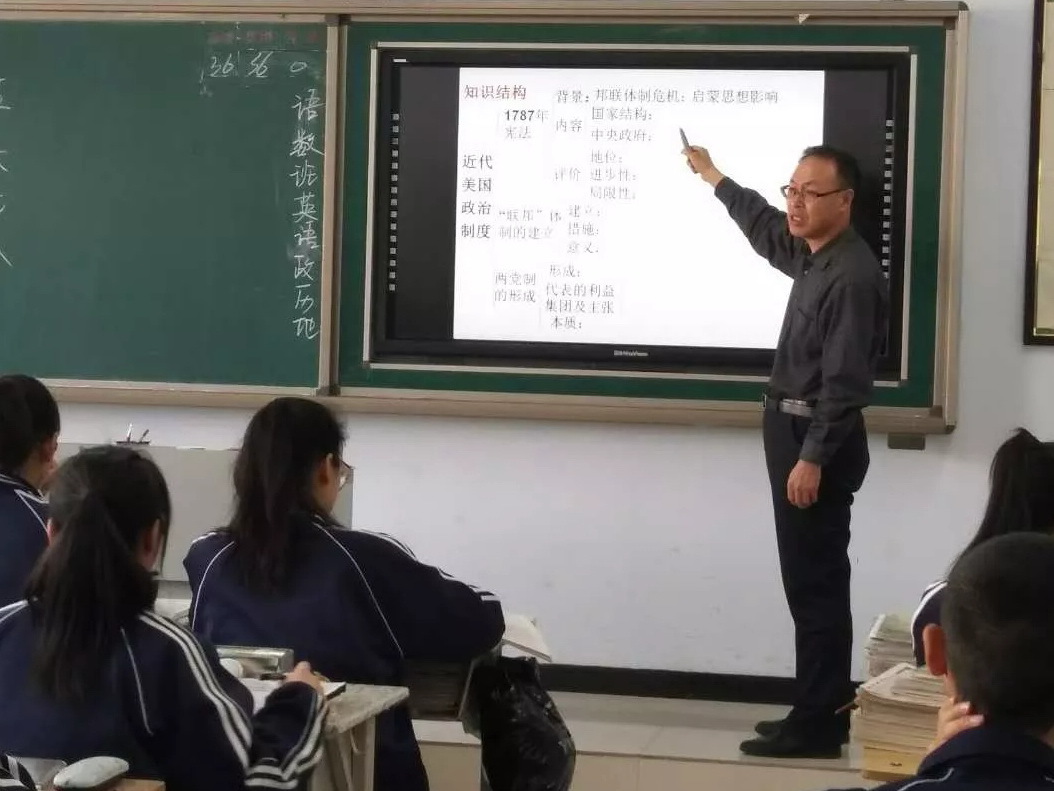 36 56 0
语
数
班
英
语
政
历
地
知识结构
背景：邦联体制危机；启蒙思想影响
1787年
宪法
内容
国家结构：
中央政府：
近代
美国
政治
制度
评价
地位：
进步性：
局限性：
"联邦"体
制的建立
建立：
措施：
意义．
两党制
的形成
形成：
代表的利益
集团及主张
本质：